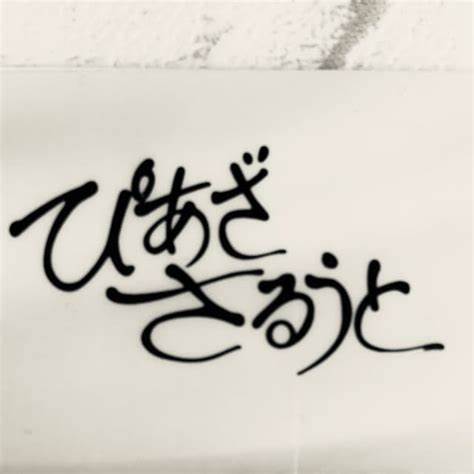 ぴあざ
さるうと